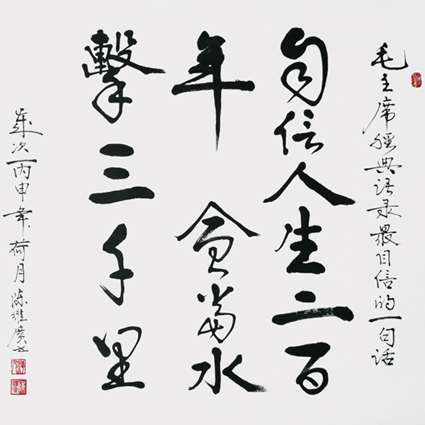 毛主席經典语录最自信的一句话
自信人生二百
年會當水
擊三千里
歲次丙申年荷月